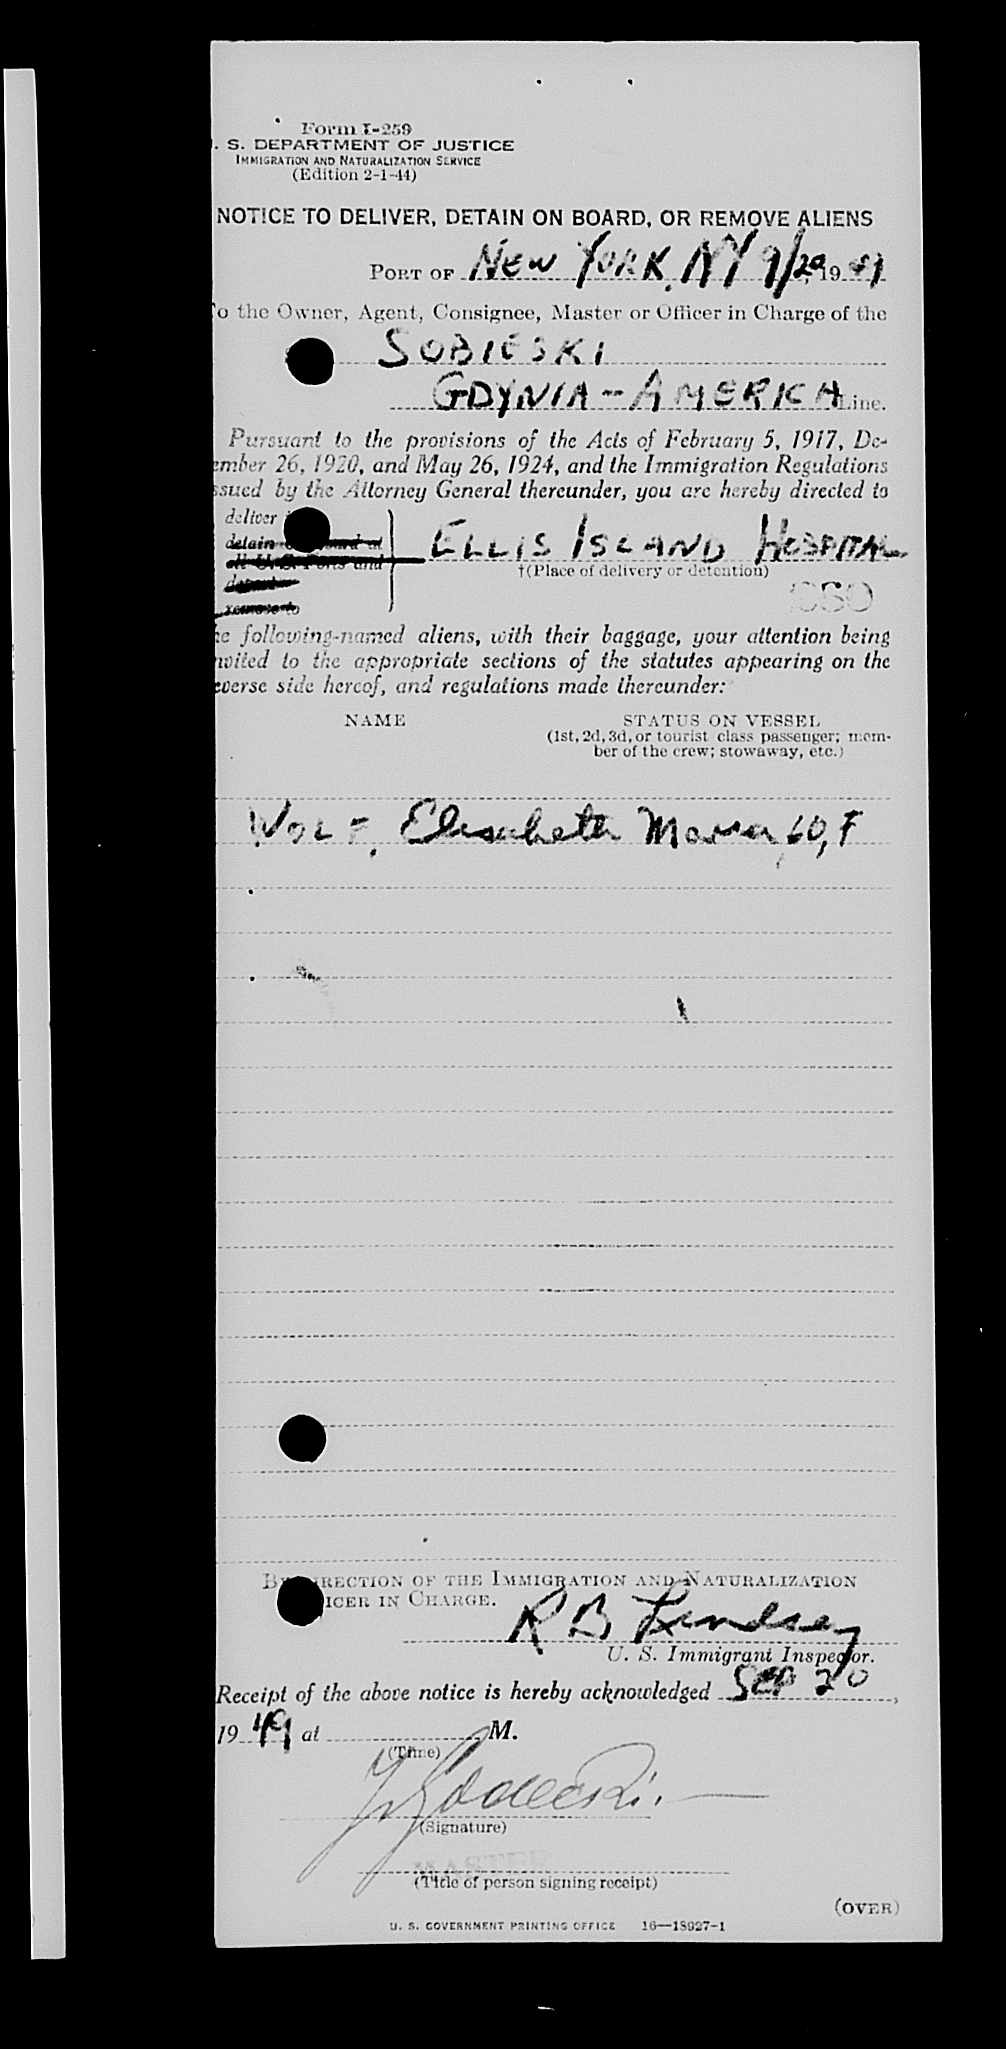 Form I-259
. S. DEPARTMENT OF JUSTICE
IMMIGRATION AND NATURALIZATION SERVICE
(Edition 2-1-44)
NOTICE TO DELIVER, DETAIN ON BOARD, OR REMOVE ALIENS
PORT OF NEW YORK, NY 9/20, 1949
o the Owner, Agent, Consignee, Master or Officer in Charge of the
SOBIESKI
GDYNIA-AMERICA Line.
Pursuant to the provisions of the Acts of February 5, 1917, De-
ember 26, 1920, and May 26, 1924, and the Immigration Regulations
ssued by the Attorney General thereunder, you are hereby directed to
deliver
detain on board at
ELLIS ISLAND HOSPITAL
all U. S. Ports and
†(Place of delivery or detention)
remove to
he following-named aliens, with their baggage, your attention being
nvited to the appropriate sections of the statutes appearing on the
everse side hereof, and regulations made thereunder:
NAME STATUS ON VESSEL
(1st, 2d, 3d, or tourist class passenger; mem-
ber of the crew; stowaway, etc.)
WOLF, Elisabeth Maria, 60, F
BY DIRECTION OF THE IMMIGRATION AND NATURALIZATION
ICER IN CHARGE.
R B Lindsey
U. S. Immigrant Inspector.
Receipt of the above notice is hereby acknowledged SEP 20,
1949 at M.
(Time)
(Signature)
MASTER
(Title of person signing receipt)
(OVER)
U. S. GOVERNMENT PRINTING OFFICE 16—18927-1